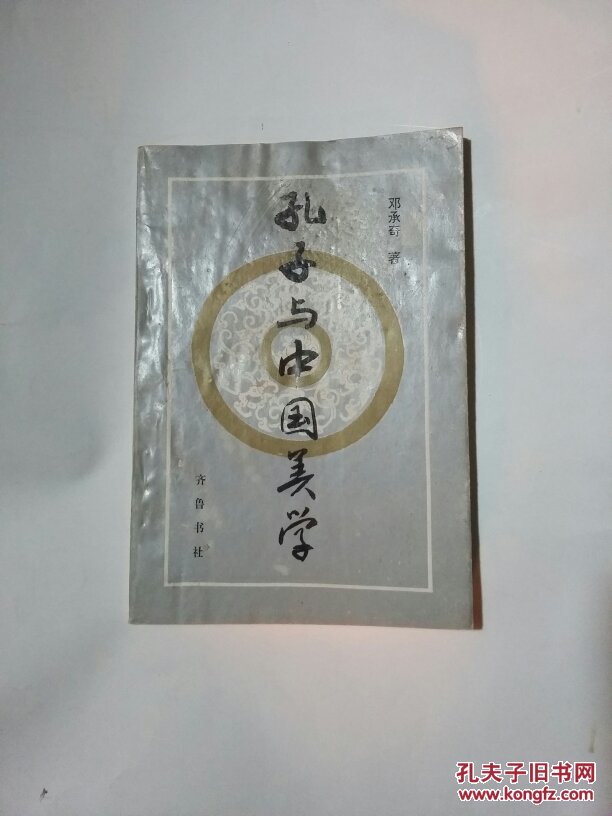 邓承奇 著
孔子与中国美学
齐鲁书社
孔夫子旧书网
www.kongfz.com